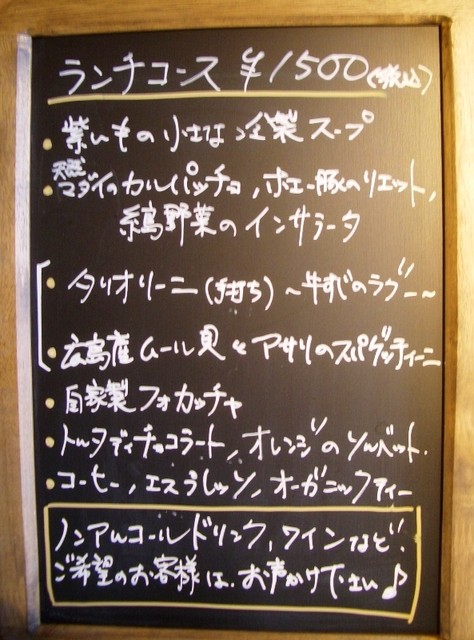 ランチコース ¥1500(税込)
・紫いもの小さな冷製スープ
天然
・マダイのカルパッチョ、ホエー豚のリエット、
縞野菜のインサラータ
・タリオリーニ(手打ち)~牛すじのラグー~
・広島産ムール貝とアサリのスパゲッティーニ
・自家製フォカッチャ
・トルタディチョコラート、オレンジのソルベット.
・コーヒー、エスプレッソ、オーガニックティー
ノンアルコールドリンク、ワインなど、
ご希望のお客様は、お声かけ下さい♪